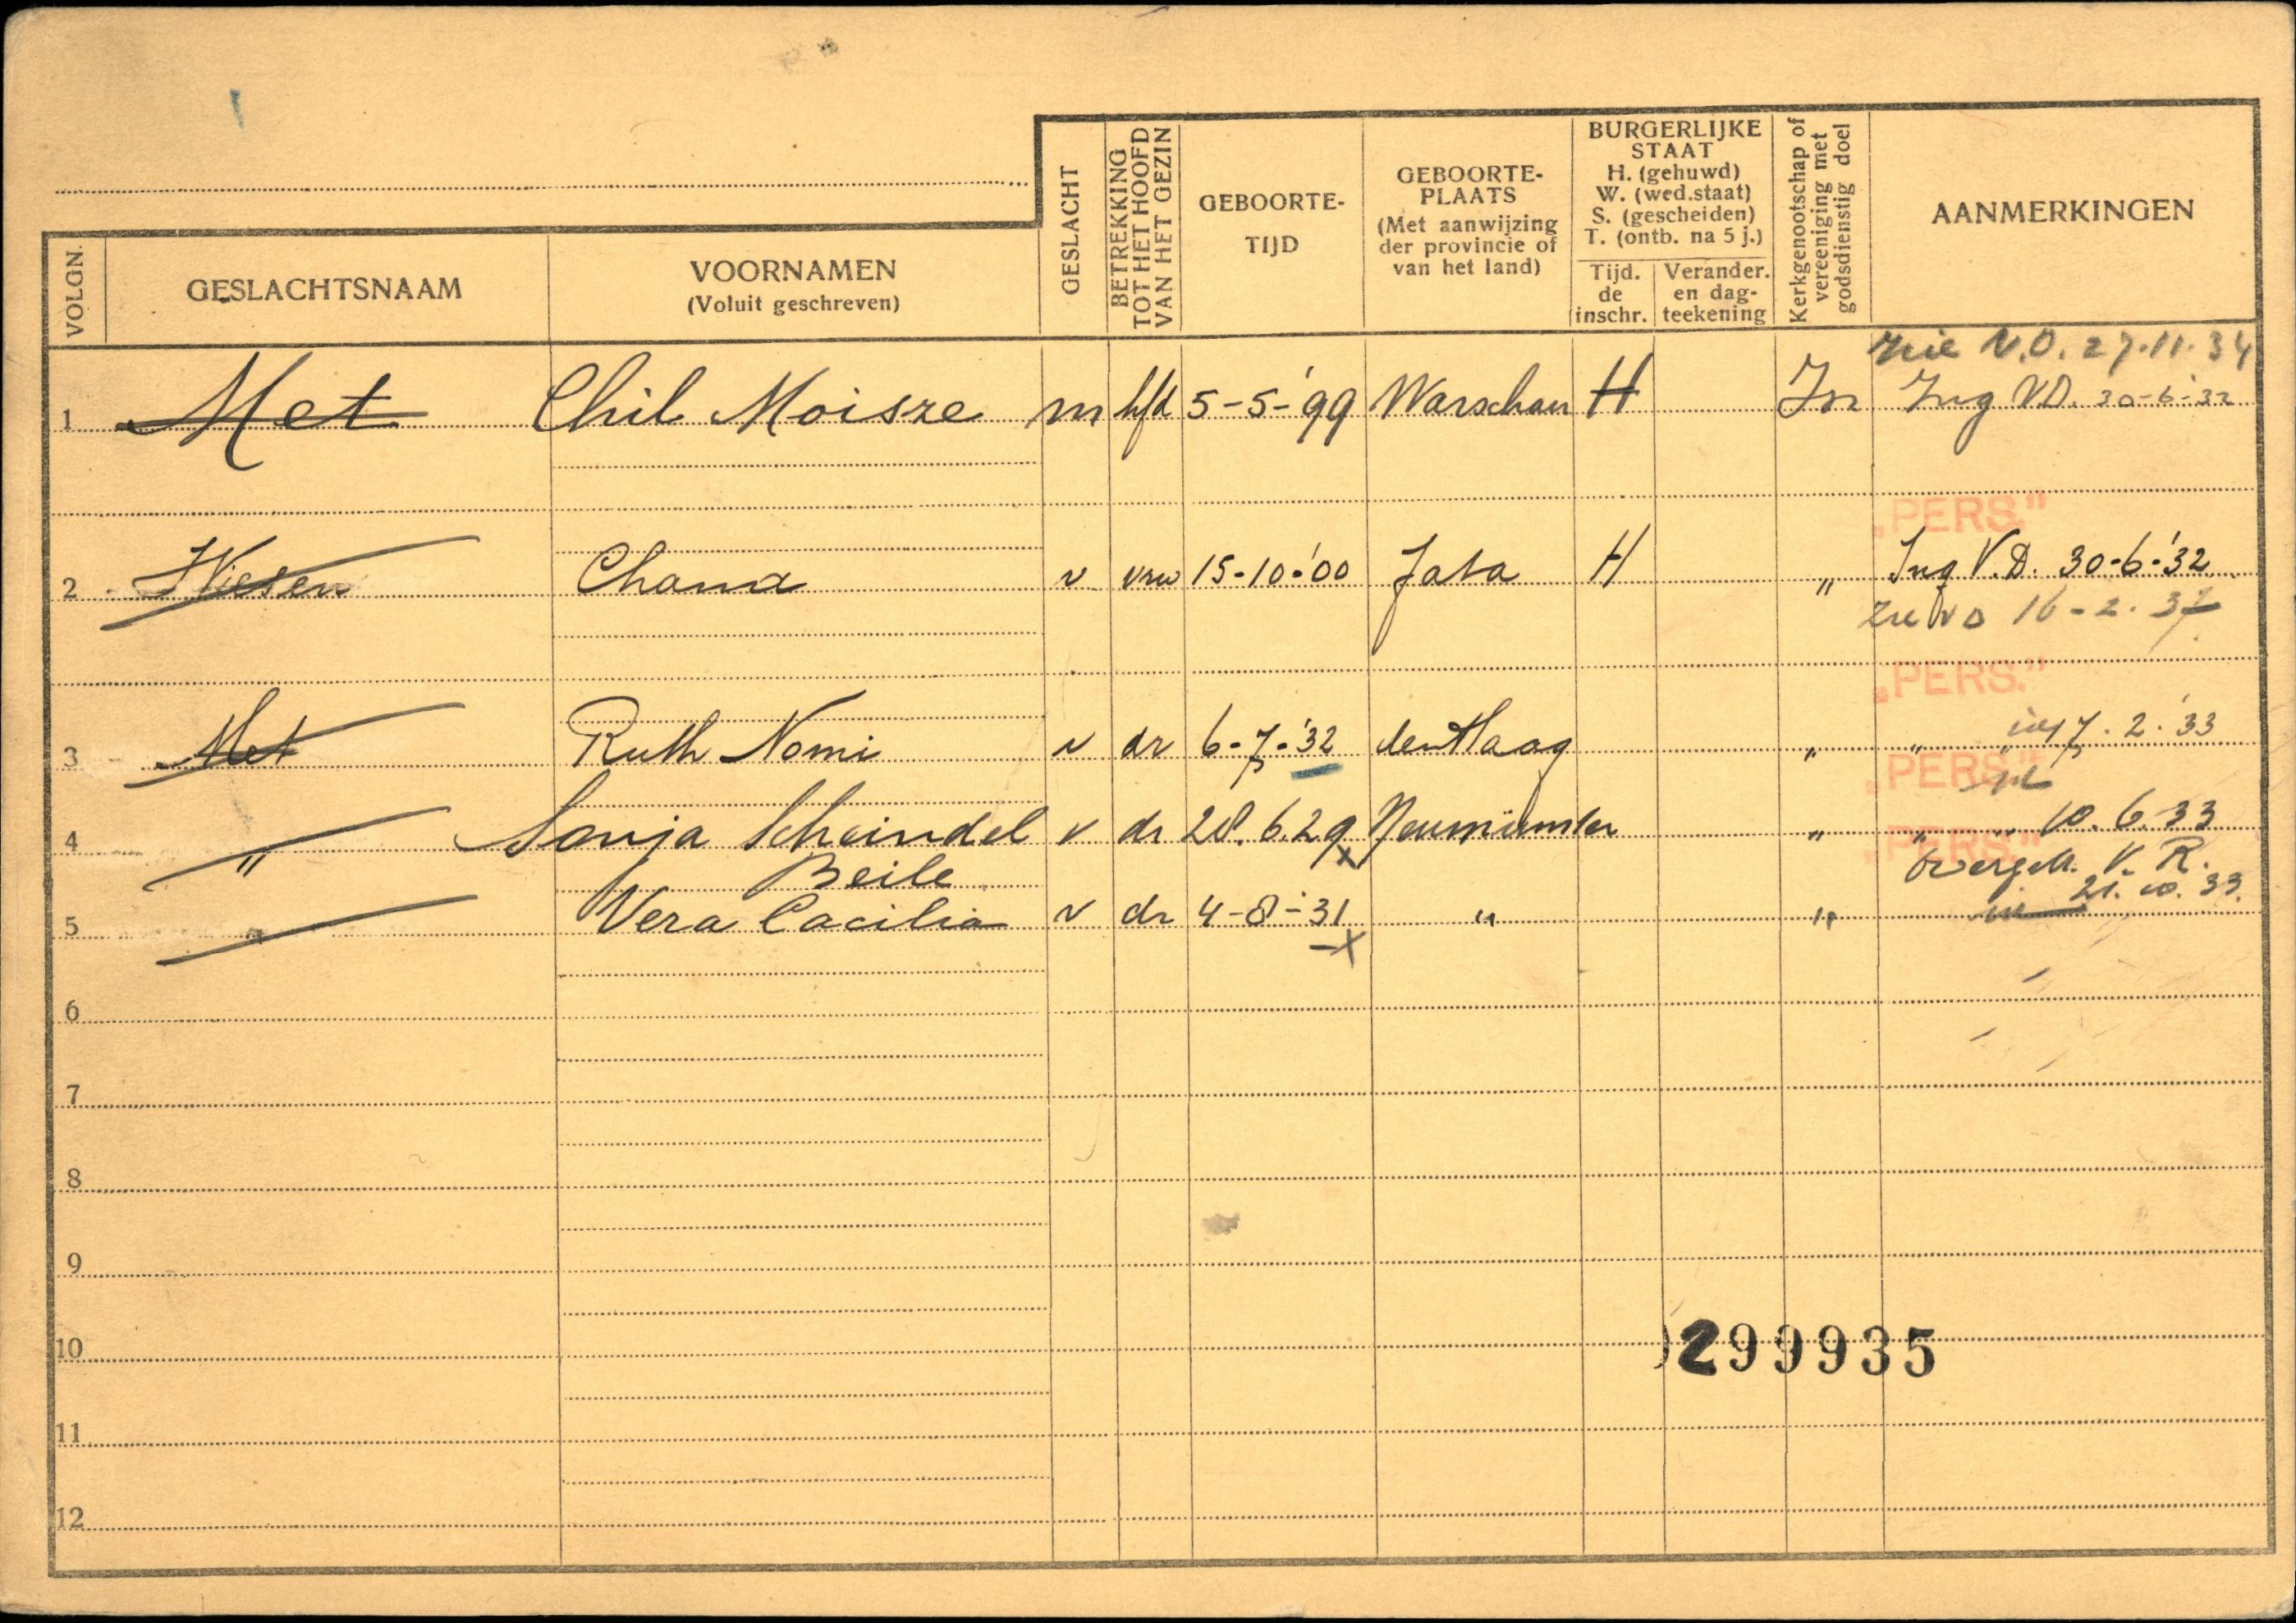 VOLGN.
GESLACHTSNAAM
VOORNAMEN
(Voluit geschreven)
GESLACHT
BETREKKING
TOT HET HOOFD
VAN HET GEZIN
GEBOORTE-
TIJD
GEBOORTE-
PLAATS
(Met aanwijzing
der provincie of
van het land)
BURGERLIJKE
STAAT
H. (gehuwd)
W. (wed.staat)
S. (gescheiden)
T. (ontb. na 5 j.)
Tijd.
de
inschr.
Verander.
en dag-
teekening
Kerkgenootschap of
vereeniging met
godsdienstig doel
AANMERKINGEN
zie V.D. 27.11.34
1 Met Chil Moisze m hfd 5-5-'99 Warschau H Isr Ing V.D. 30-6-'32
„PERS."
2 Wiesen Chana v vrw 15-10-'00 Jasa H „ Ing V.D. 30-6-'32
zie VD 16-2.37
„PERS."
3 Met Ruth Nomi v dr 6-7-'32 den Haag „ „ „ 7.2.'33
„PERS."
4 „ Sonja Scheindel v dr 28.6.29 Neumünster „ „ „ 10.6.33
„PERS."
Beile
overgeh. V.R.
21.10.33.
5 „ Vera Cacilia v dr 4-8-'31 „ „
6
7
8
9
10
299935
11
12